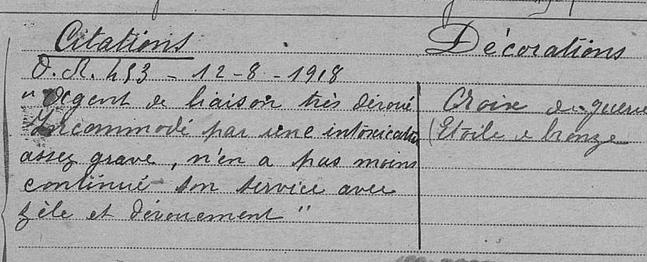 Citations
Décorations
O.R. 453 - 12-8-1918
"Agent de liaison très dévoué
Incommodé par une intoxication
assez grave, n'en a pas moins
continué son service avec
zèle et dévouement"
Croix de guerre
(Etoile de bronze